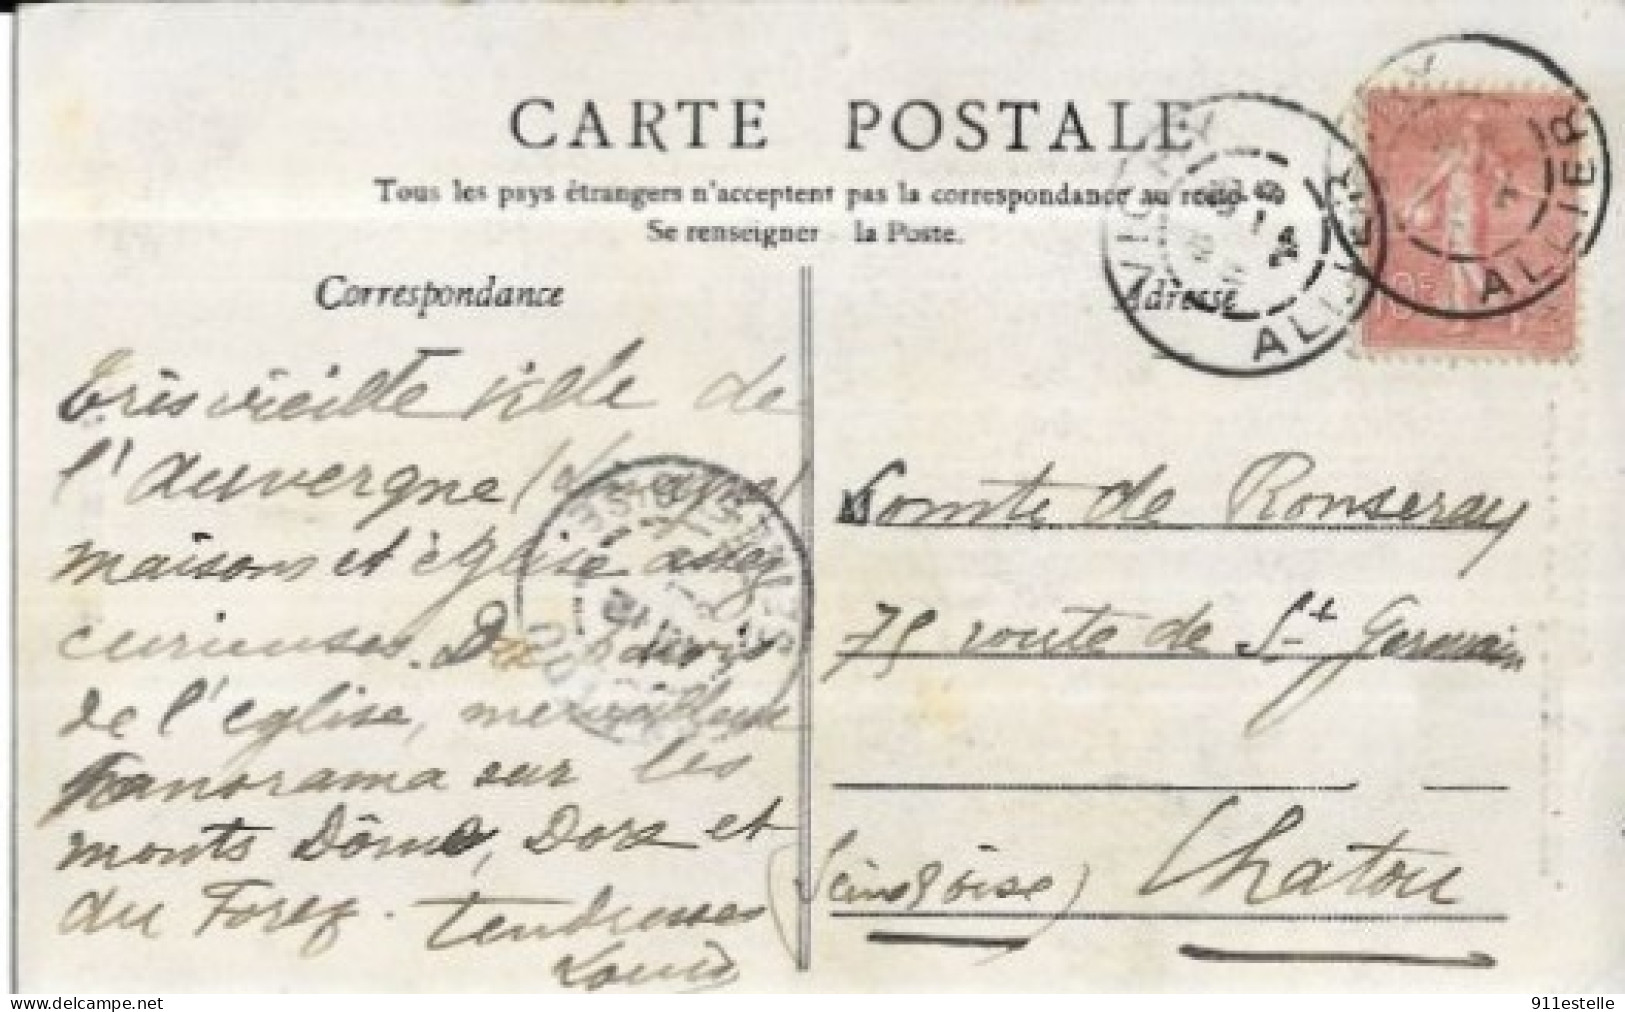 CARTE POSTALE
Tous les pays étrangers n'acceptent pas la correspondance au recto.
Se renseigner à la Poste.
Correspondance
Adresse
ALLIER
ALLIER
très vieille ville de
l'Auvergne
maisons et église assez
curieuses. Du parvis
de l'église, merveilleux
panorama sur les
monts Dôme, Dore et
du Forez. Tendresses
Louis
Comte de Ronseray
75 route de St Germain
Chatou
(Seine & Oise)
911estelle